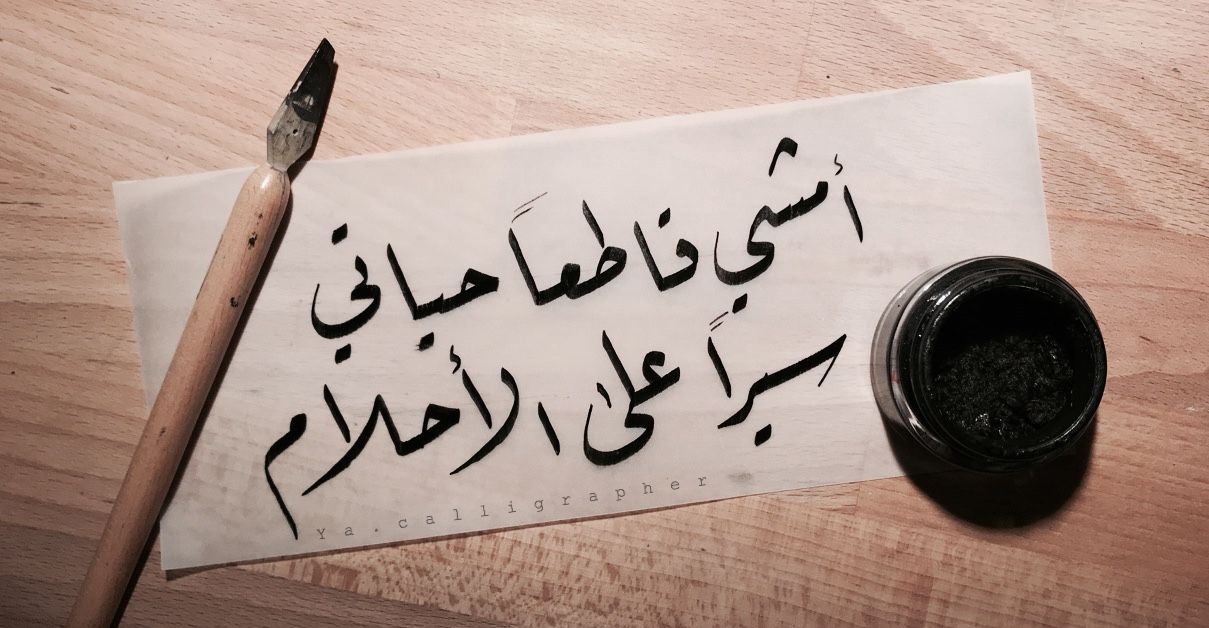 أمشي قاطعاً حياتي
سيراً على الأحلام
Ya.calligrapher